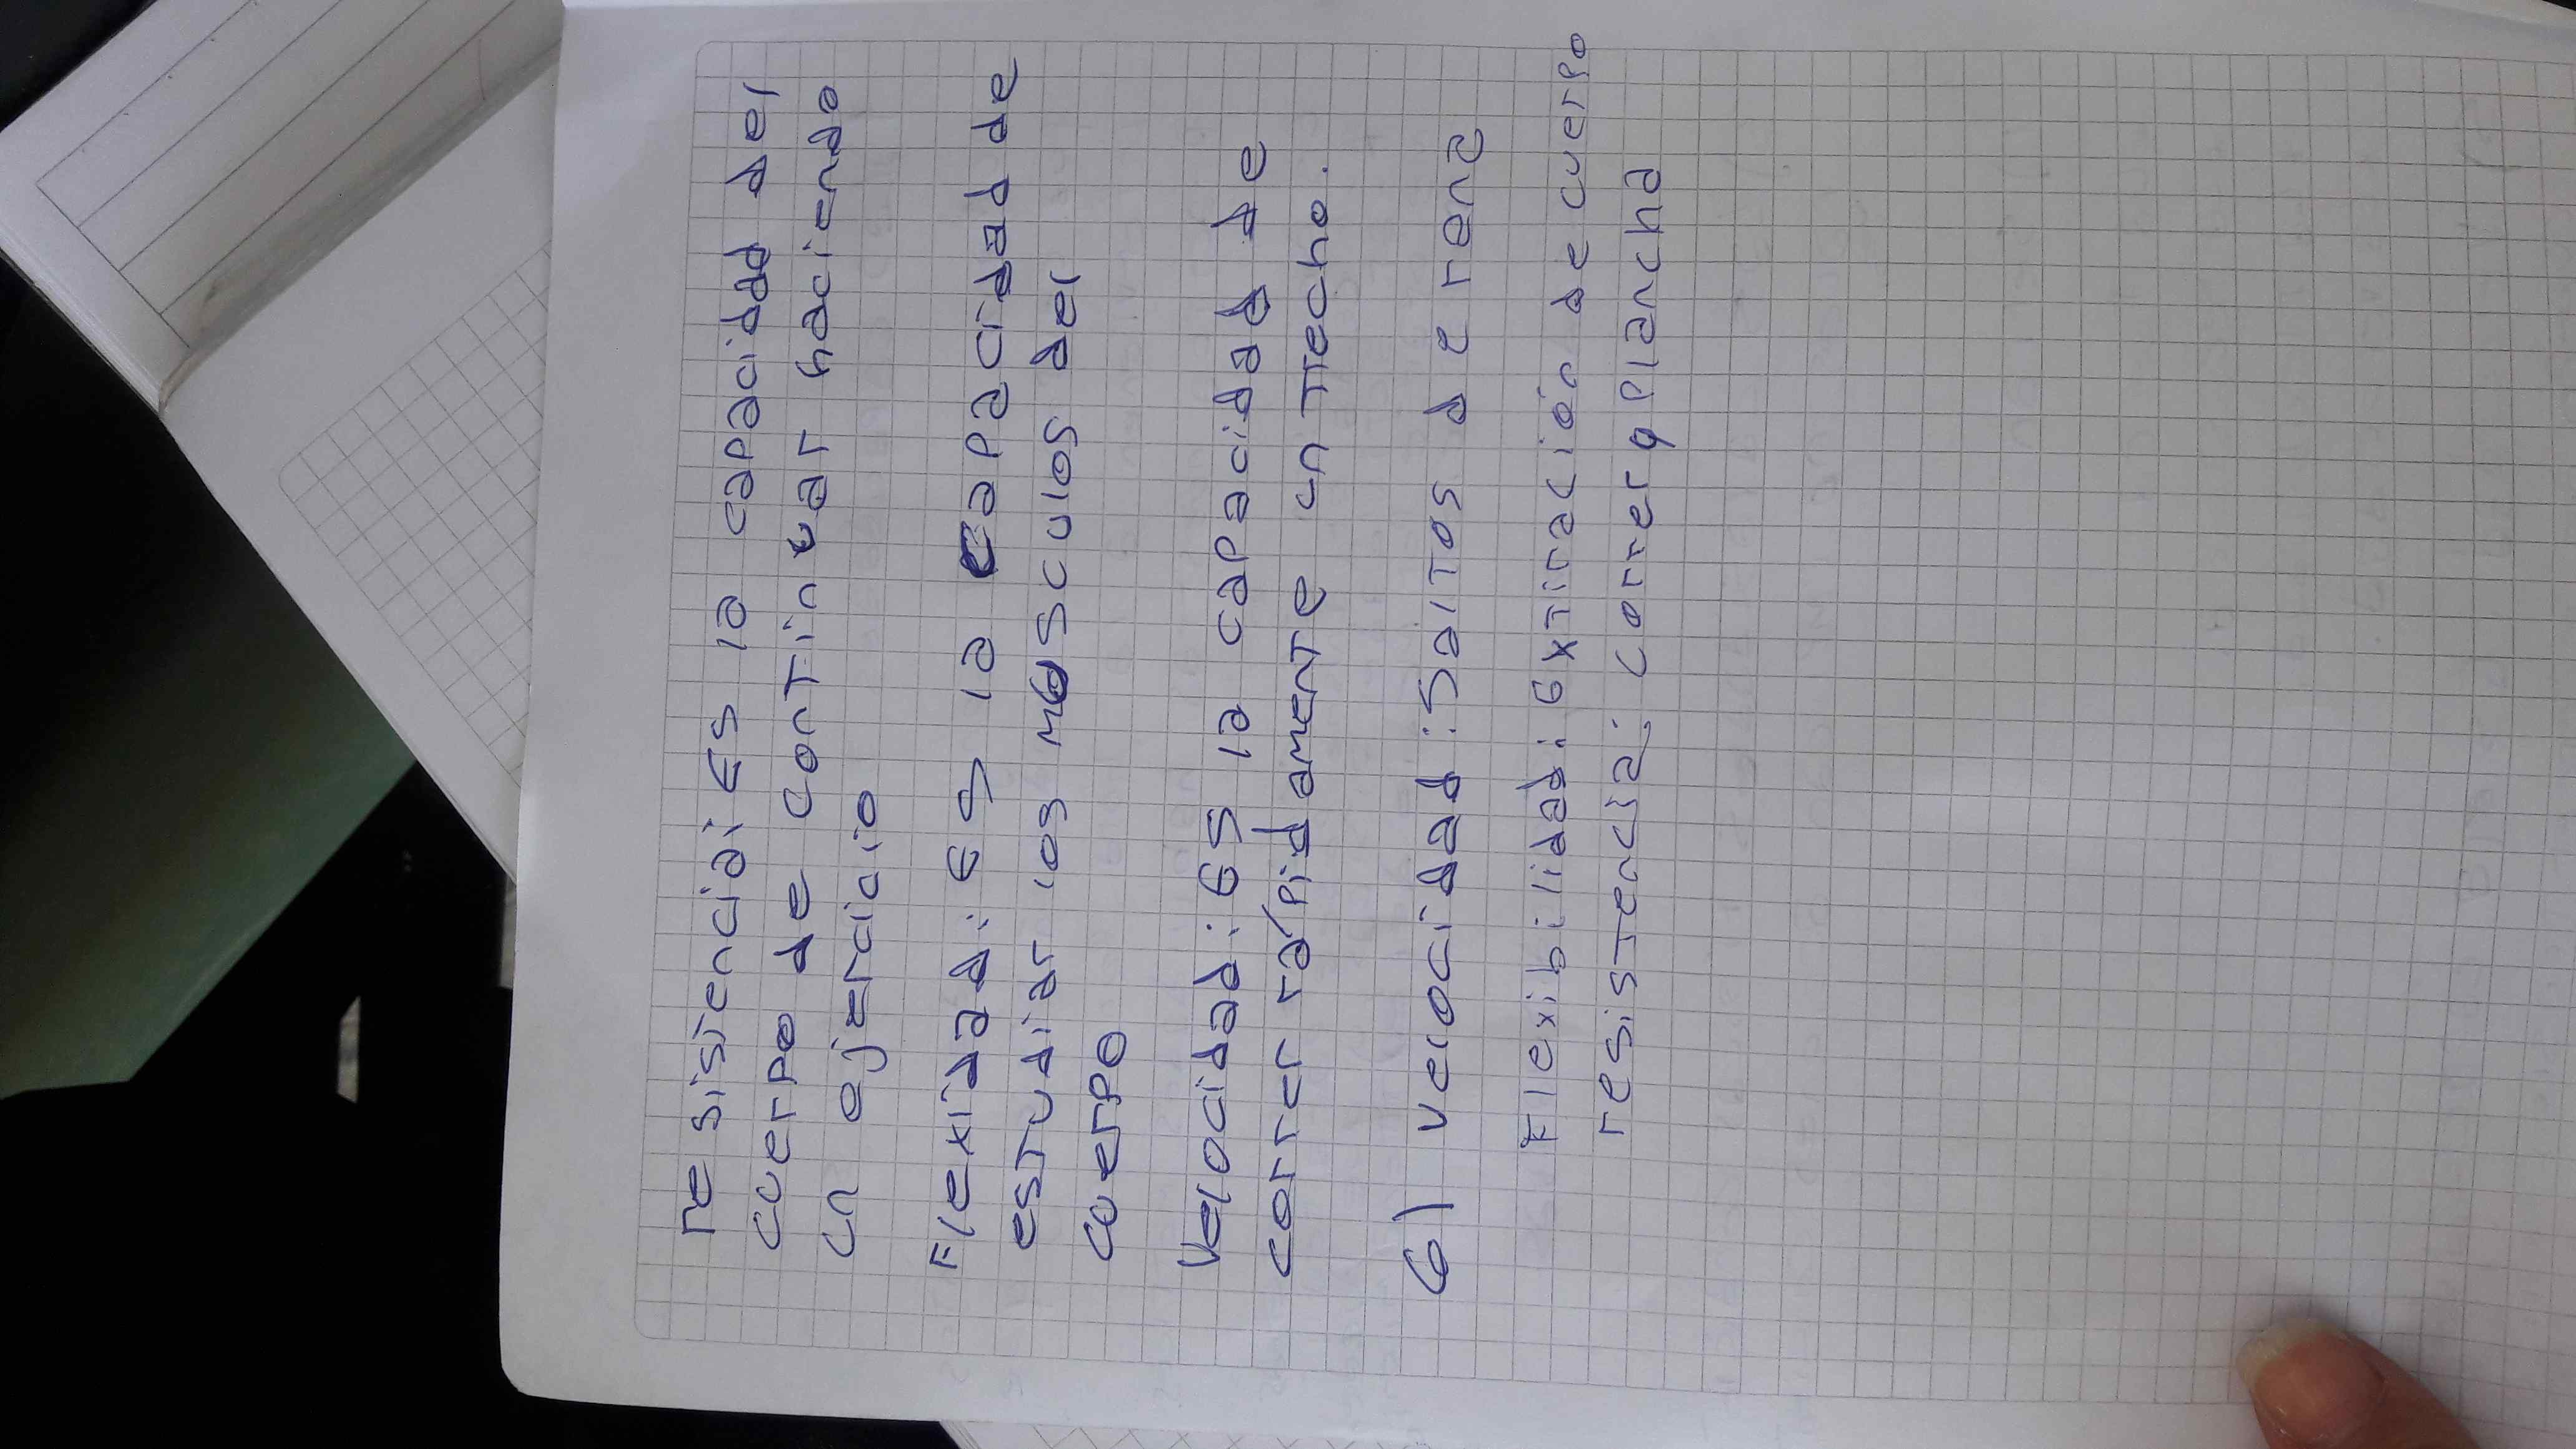 resistencia: Es la capacidad del
cuerpo de continuar haciendo
un ejercicio
Flexidad: es la capacidad de
estudiar los musculos del
cuerpo
Velocidad: es la capacidad de
correr rápidamente un trecho.
6) velocidad: Saltos de rena
Flexibilidad: Extiración de cuerpo
resistencia: correr y plancha